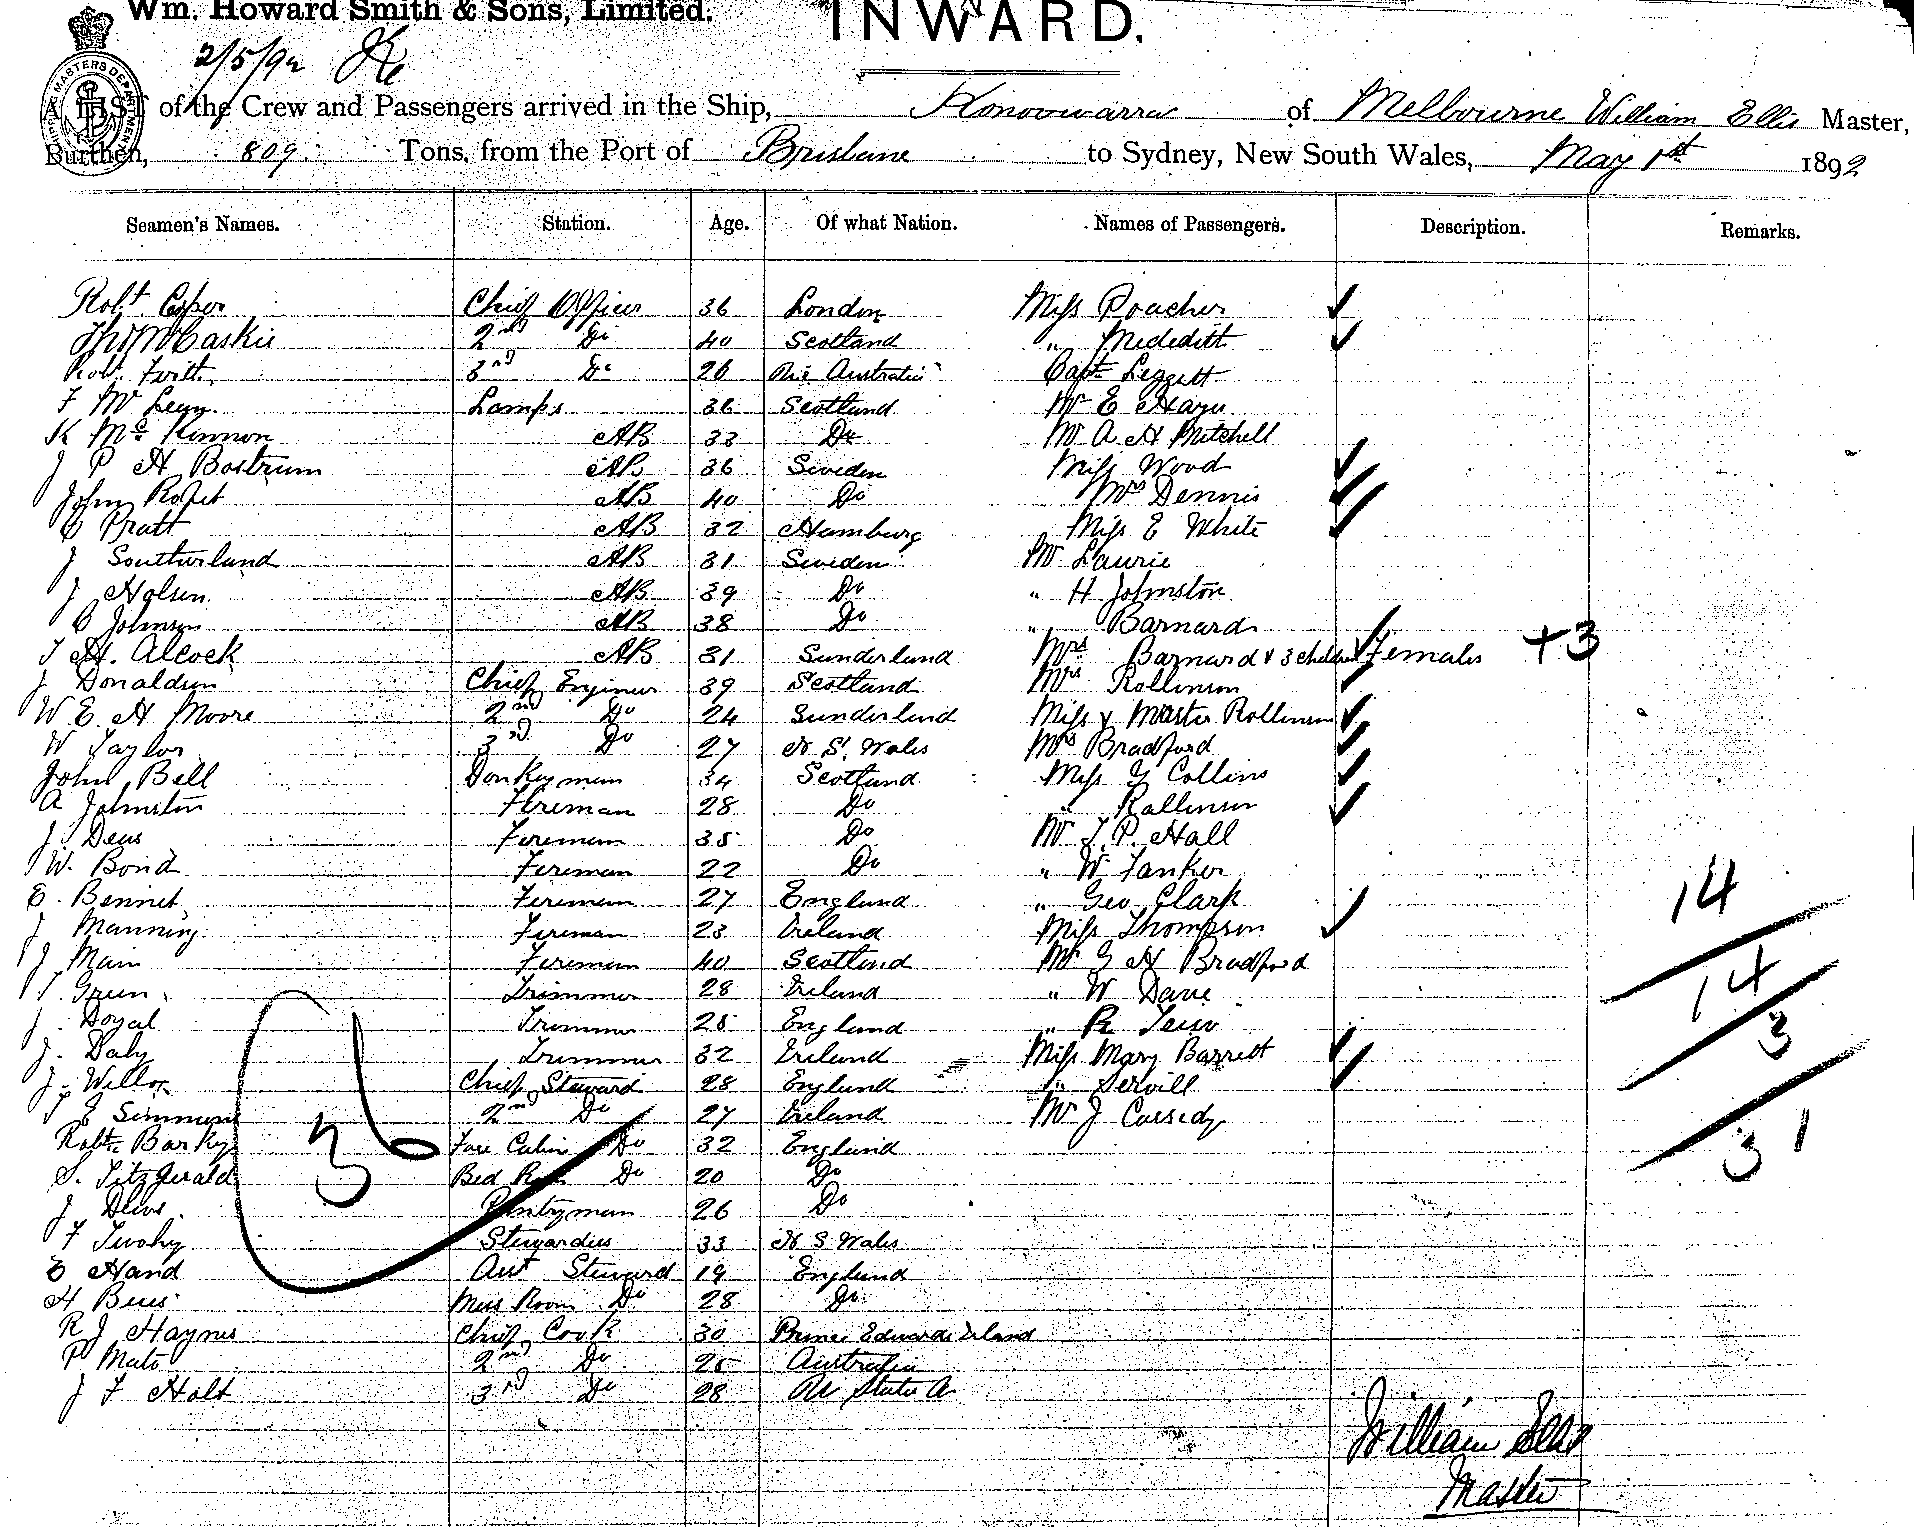 Wm. Howard Smith & Sons, Limited.
INWARD.
2/5/92
A LIST of the Crew and Passengers arrived in the Ship, Konoowarra of Melbourne William Ellis Master,
Burthen, 809 Tons, from the Port of Brisbane to Sydney, New South Wales, May 1st 1892
Seamen's Names. Station. Age. Of what Nation. Names of Passengers. Description. Remarks.
Robt. Chief Officer 36 London Miss Poacher
Thos McCaskie 2nd Do 40 Scotland " Mededitt
Robt. Firth. 3rd Do 26 Australia Capt Leggett
F Mc Lamps 36 Scotland Mr E
K McKinnon AB 33 Do Mr A H Mitchell
J P H Bostrum AB 36 Sweden Miss Wood
John AB 40 Do Mrs Dennis
C Pratt AB 32 Hamburg Miss E White
J Southerland AB 31 Sweden Mr Laurie
J Holsen AB 39 Do " H Johnston
C Johnson AB 38 Do " Barnard
T H. Alcock AB 31 Sunderland Mrs Barnard & 3 children Females +3
J Donaldson Chief Engineer 39 Scotland Mrs Rollinson
W E H Moore 2nd Do 24 Sunderland Miss & Master Rollinson
W Taylor 3rd Do 27 N S. Wales Mrs Bradford
John Bell Donkeyman 34 Scotland Miss G Collins
A Johnston Fireman 28 Do " Rallinson
J. Deus Fireman 35 Do Mr T. P. Hall
W. Bond Fireman 22 Do " W Tanker
E. Bennet Fireman 27 England " Geo Clark
J Manning Fireman 23 Ireland Miss Thompson
J Main Fireman 40 Scotland Mr G H Bradford
T. Green Trimmer 28 Ireland " W Dave
J. Doyal Trimmer 25 England " R
J. Daly Trimmer 32 Ireland Miss Mary Barrett
J. Chief Steward 28 England " Servill
T E Simmons 2nd Do 27 Ireland Mr J Cassidy
Robt. Barky Fore Cabin Do 32 England
S. Fitzgerald Bed Room Do 20 Do
J Pantryman 26 Do
F Twohy Stewardess 33 N S Wales
E Hand Ast Steward 19 England
H Mess Room Do 28 Do
R J Haynes Chief Cook 30 Prince Edwards Island
P Mato 2nd Do 25 Australia
J F Holt 3rd Do 28 States A
36
14
14
3
31
William Ellis
Master